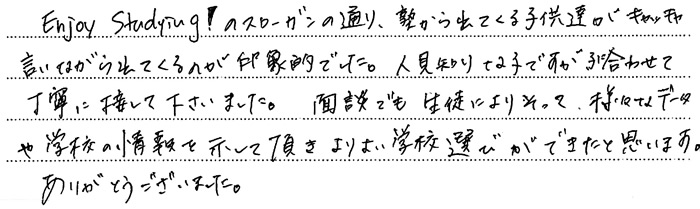 Enjoy Studying! のスローガンの通り、塾から出てくる子供達がキャッキャ
言いながら出てくるのが印象的でした。人見知りな子ですが子に合わせて
丁寧に接して下さいました。 面談でも生徒によりそって、様々なデータ
や学校の情報を示して頂きよりよい学校選びができたと思います。
ありがとうございました。